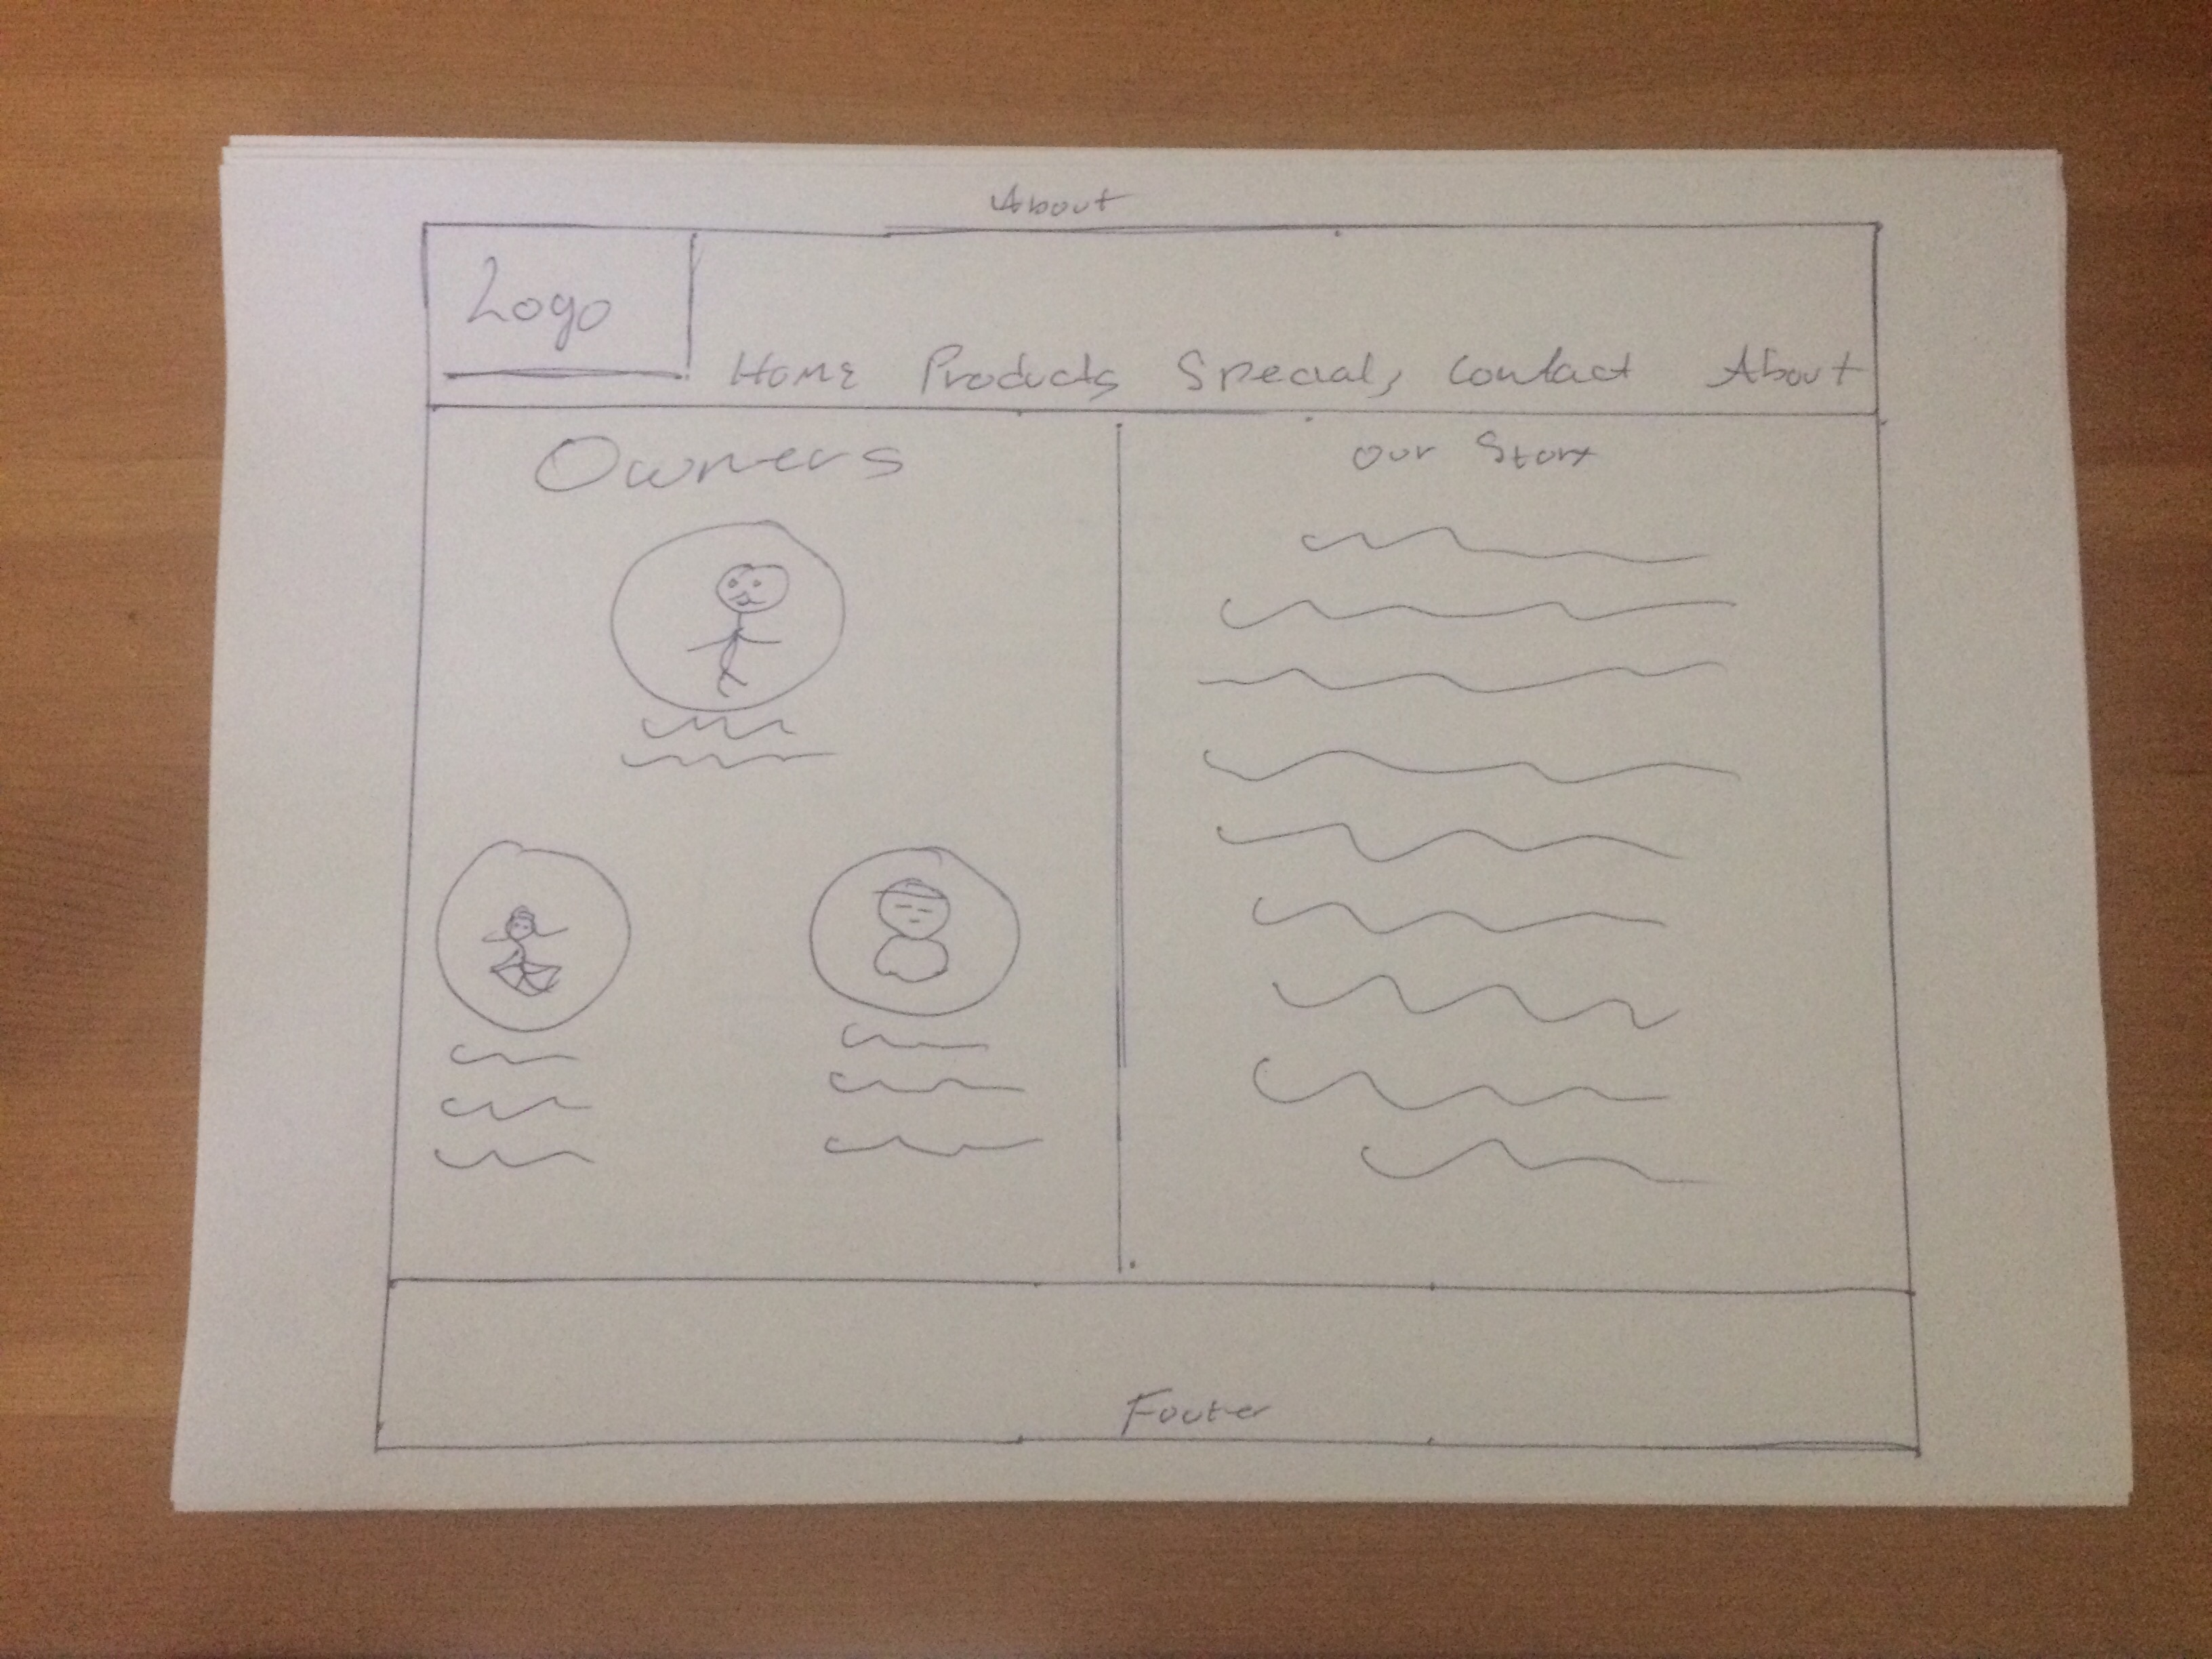 About
Logo
Home Products Specials Contact About
Owners
Our Story
Footer